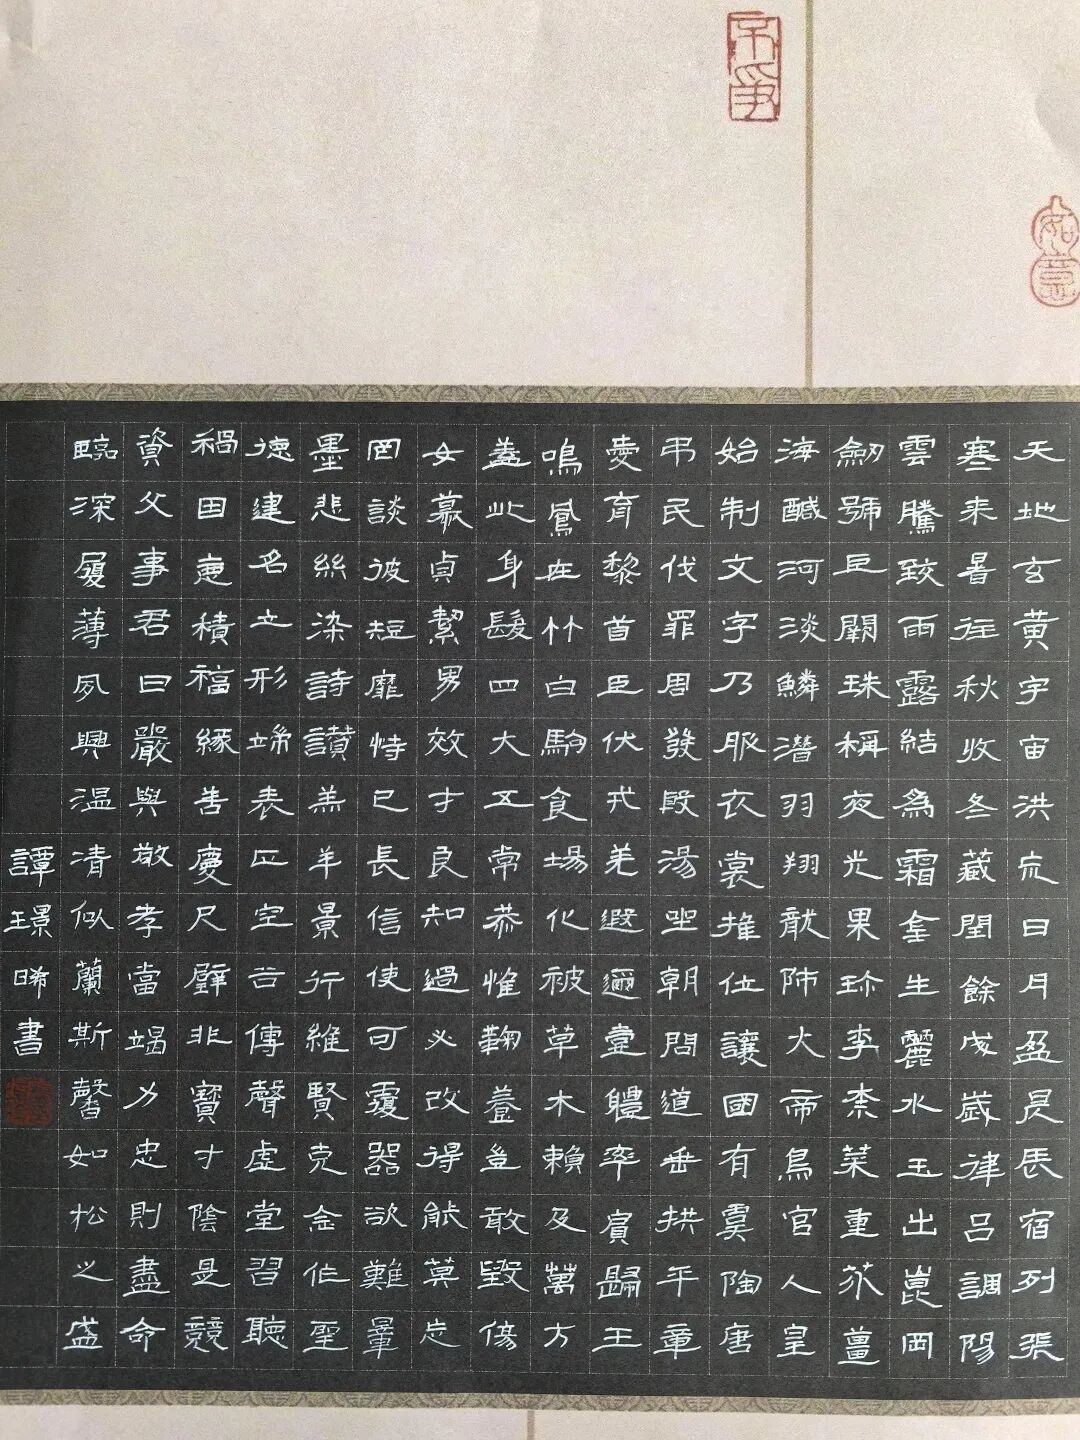 如意
不爭
天地玄黃宇宙洪荒日月盈昃辰宿列張
寒来暑往秋收冬藏閏餘成歲律呂調陽
雲騰致雨露結為霜金生麗水玉出崑岡
劒號巨闕珠稱夜光果珍李柰菜重芥薑
海醎河淡鱗潛羽翔龍師火帝鳥官人皇
始制文字乃服衣裳推位讓國有虞陶唐
弔民伐罪周發殷湯坐朝問道垂拱平章
愛育黎首臣伏戎羌遐邇壹體率賓歸王
鳴鳳在竹白駒食場化被草木賴及萬方
蓋此身髮四大五常恭惟鞠養豈敢毀傷
女慕貞絜男效才良知過必改得能莫忘
罔談彼短靡恃己長信使可覆器欲難量
墨悲絲染詩讚羔羊景行維賢克念作聖
德建名立形端表正空谷傳聲虛堂習聽
禍因惡積福緣善慶尺璧非寶寸陰是競
資父事君曰嚴與敬孝當竭力忠則盡命
臨深履薄夙興溫清似蘭斯馨如松之盛
譚璟晞書